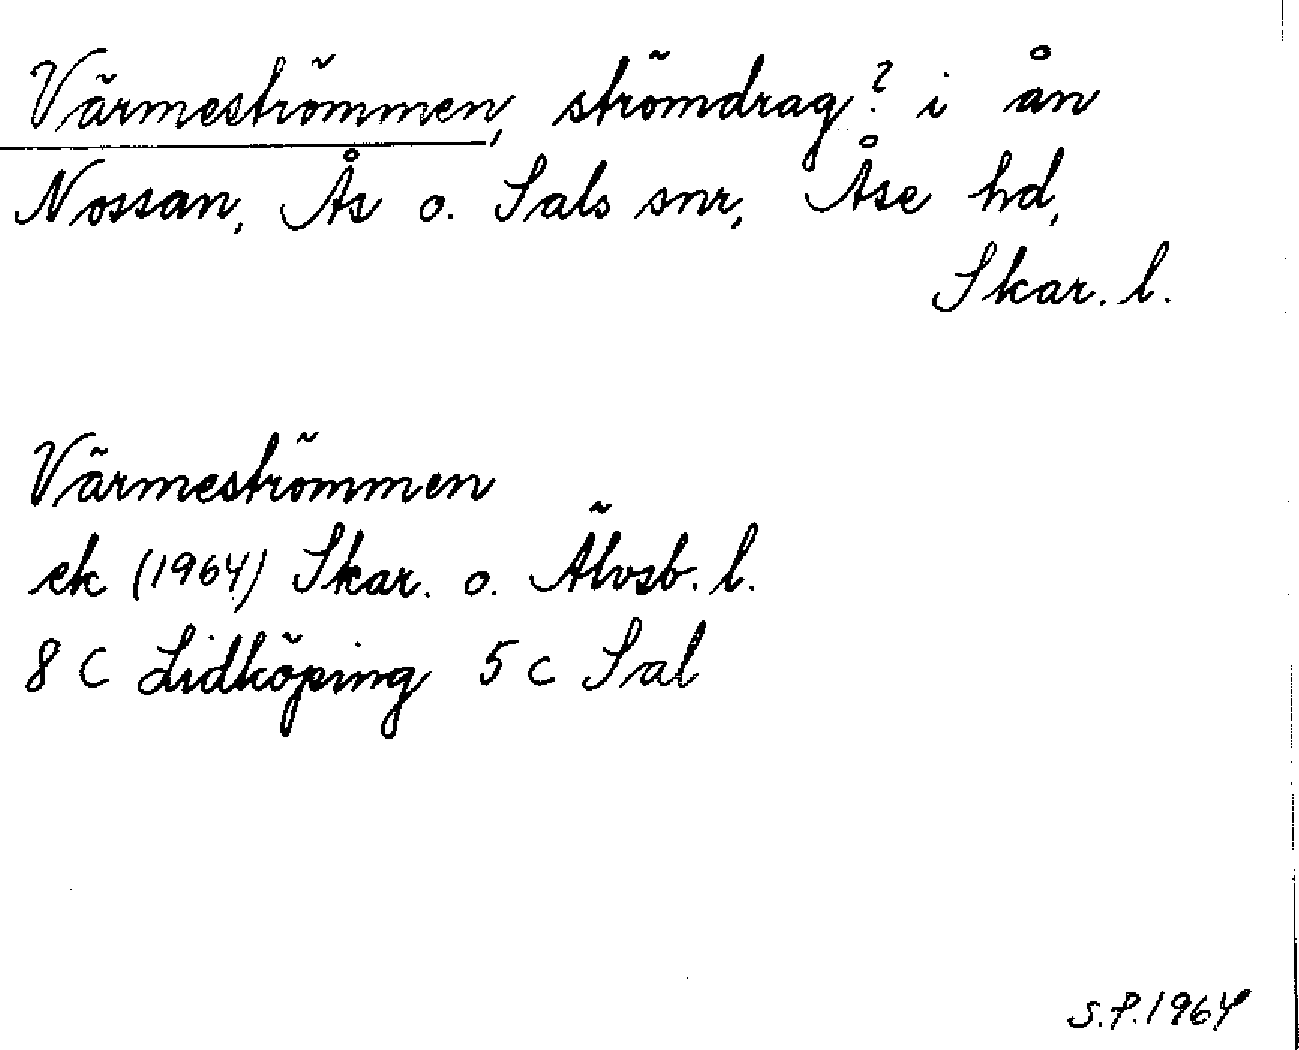 Värmeströmmen, strömdrag? i ån
Nossan, Ås o. Sals snr, Åse hd,
Skar. l.
Värmeströmmen
ek (1964) Skar. o. Älvsb. l.
8 C Lidköping 5 c Sal
S.P. 1964